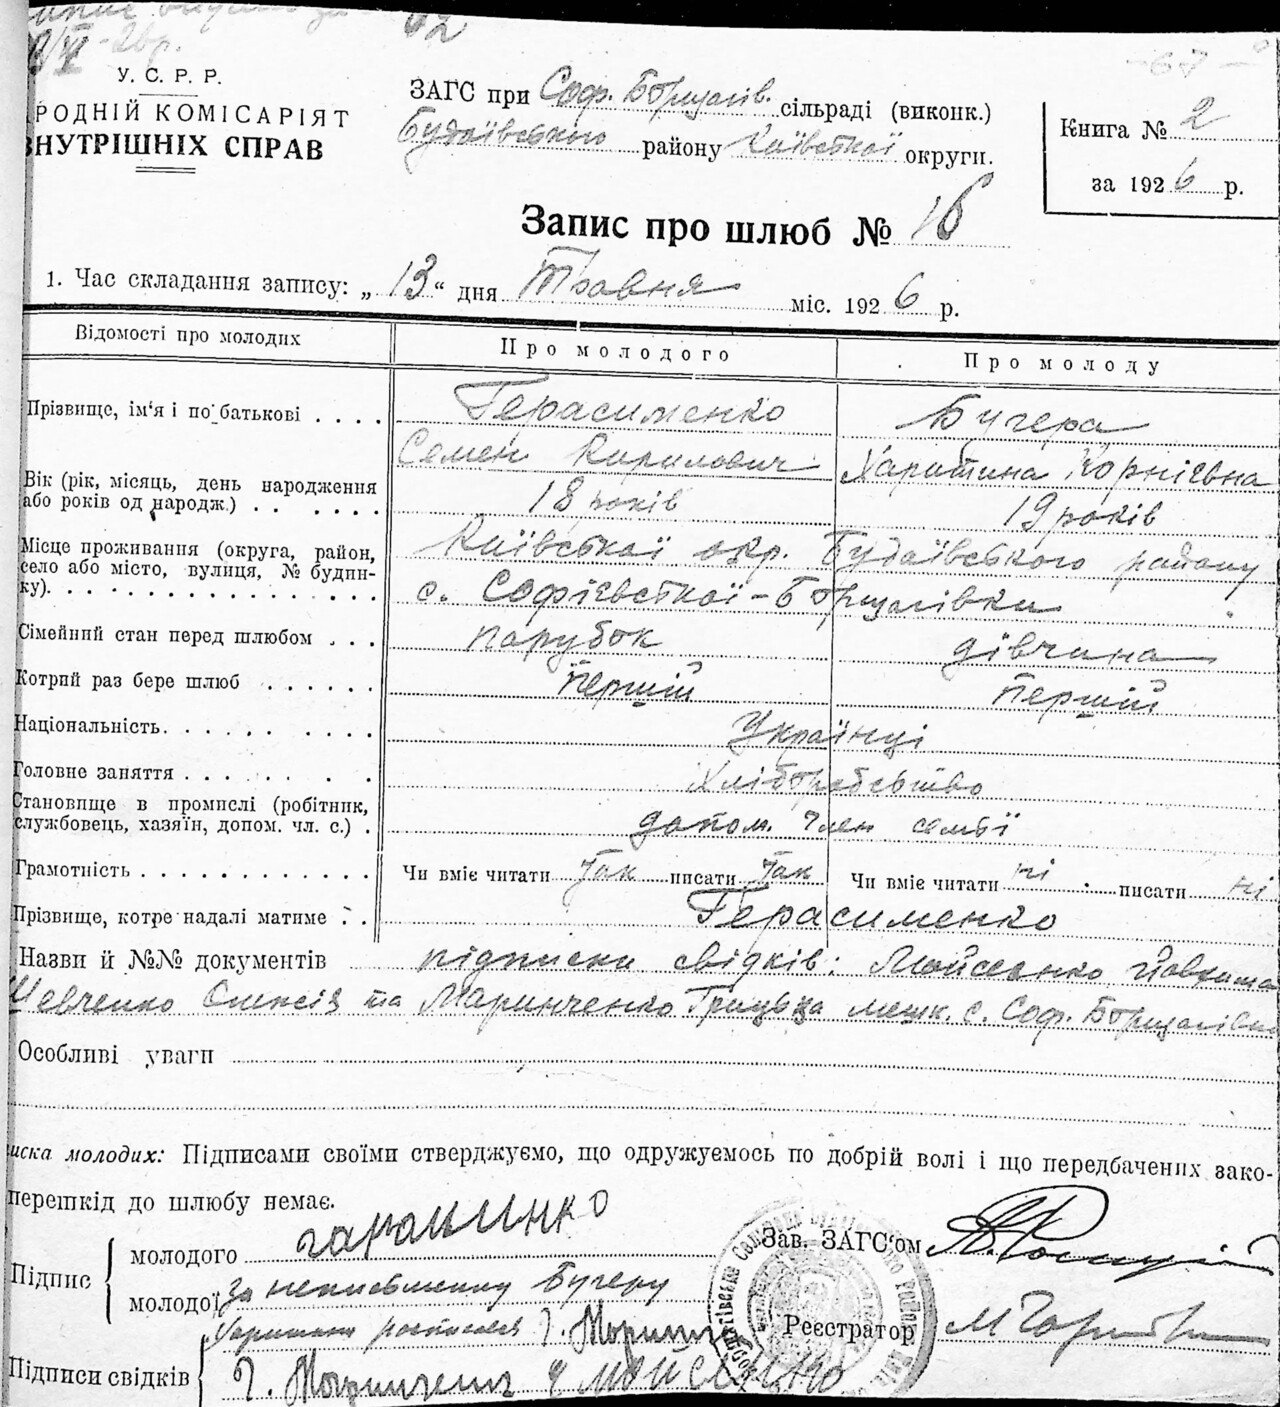 У. С. Р. Р.
РОДНІЙ КОМІСАРІЯТ
ВНУТРІШНІХ СПРАВ
62
-67-
ЗАГС при Соф. Борщагів. сільраді (виконк.)
Будаївського району Київської округи.
Книга № 2
за 1926 р.
Запис про шлюб № 16
1. Час складання запису: „13“ дня Травня міс. 1926 р.
Відомості про молодих Про молодого Про молоду
Прізвище, ім'я і по батькові . . . . Герасименко Бугера
Семен Кирилович Харитина Корніївна
Вік (рік, місяць, день народження
або років од народж.) . . . . . . 18 років 19 років
Місце проживання (округа, район, Київської окр. Будаївського району
село або місто, вулиця, № будин-
ку). . . . . . . . . . . . . . . с. Софієвської-Борщагівки
Сімейний стан перед шлюбом . . . парубок дівчина
Котрий раз бере шлюб . . . . . . перший перший
Національність. . . . . . . . . Українці
Головне заняття . . . . . . . . Хліборобство
Становище в промислі (робітник,
службовець, хазяїн, допом. чл. с.) . допом. член семьї
Грамотність . . . . . . . . . . . . Чи вміє читати так писати так Чи вміє читати ні писати ні
Прізвище, котре надалі матиме . . Герасименко
Назви й №№ документів підписки свідків: Мойсеенко Йовхима
Шевченко Олексія та Маринченко Грицька мешк. с. Соф. Борщагівки
Особливі уваги
иска молодих: Підписами своїми стверджуємо, що одружуємось по добрій волі і що передбачених зако-
перешкід до шлюбу немає.
Підпис
молодого гарасименко
молодої За неписьменну Бугеру
Харитину росписався Г. Марин
Зав. ЗАГС'ом
Реєстратор
Підписи свідків Г. Марынченк мойсеенко